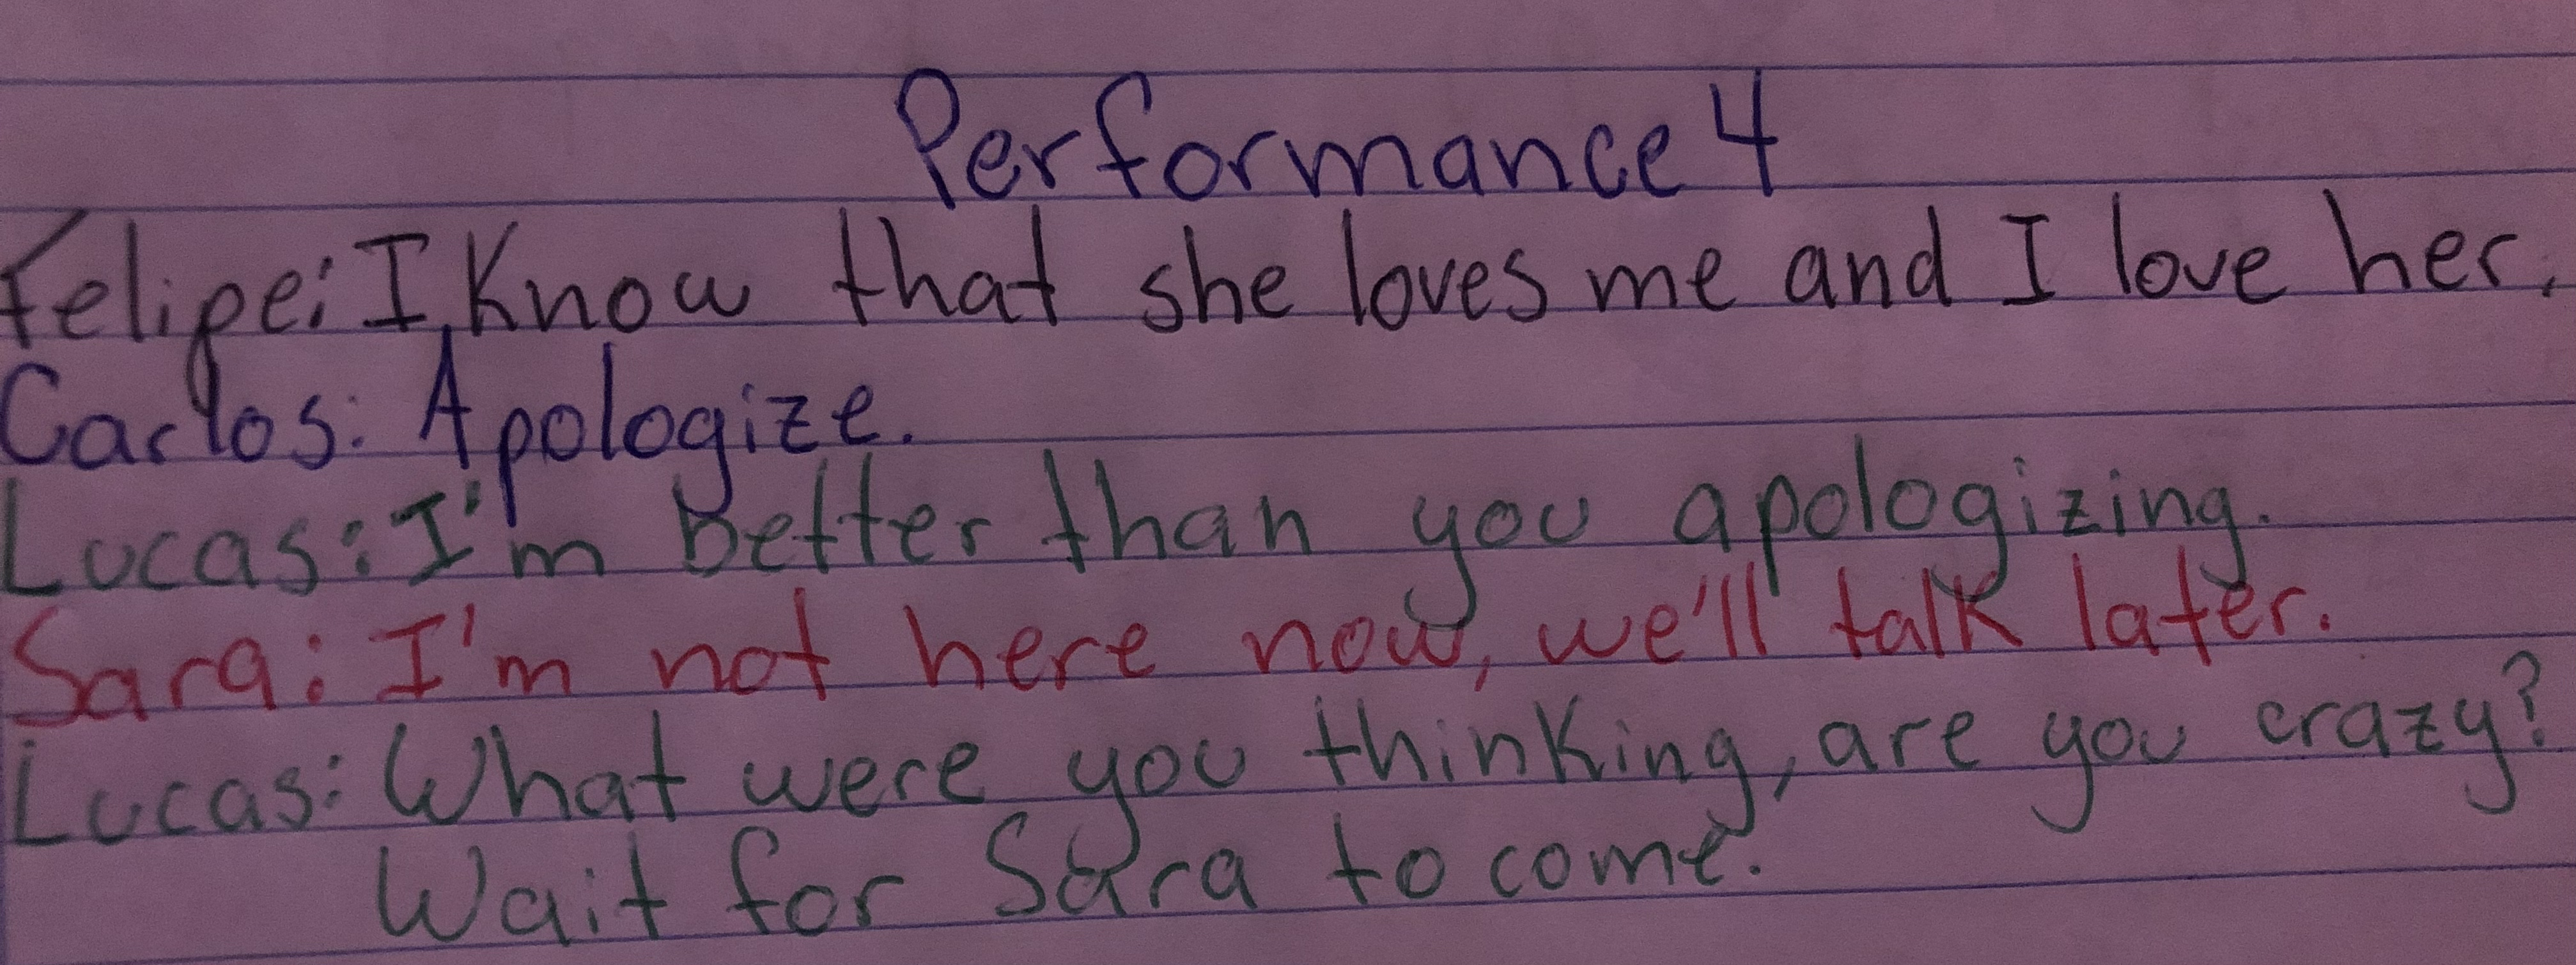 Performance 4
Felipe: I Know that she loves me and I love her.
Carlos: Apologize.
Lucas: I'm better than you apologizing.
Sara: I'm not here now, we'll talk later.
Lucas: What were you thinking, are you crazy?
Wait for Sara to come.